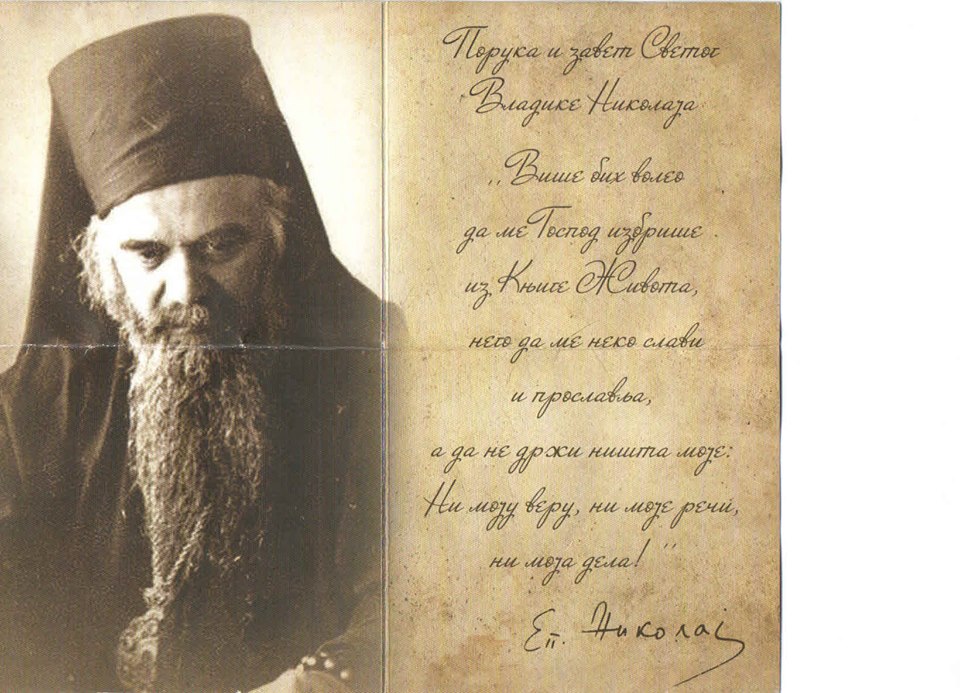 Порука и завет Светог
Владике Николаја
„Више бих волео
да ме Господ избрише
из Књиге Живота,
него да ме неко слави
и прославља,
а да не држи ништа моје:
Ни моју веру, ни моје речи,
ни моја дела!"
Еп. Николај